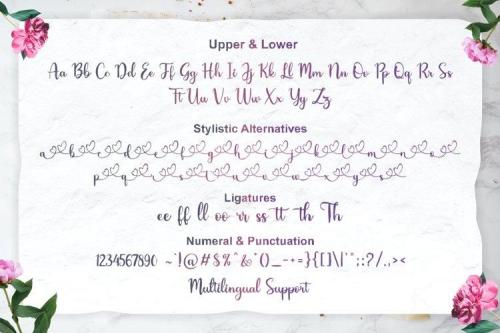 Upper & Lower
Aa Bb Cc Dd Ee Ff Gg Hh Ii Jj Kk Ll Mm Nn Oo Pp Qq Rr Ss
Tt Uu Vv Ww Xx Yy Zz
Stylistic Alternatives
a b c d e f g h i j k l m n o
p q r s t u v w x y s
Ligatures
ee ff ll oo rr ss tt th Th
Numeral & Punctuation
1234567890 ~`!@#$%^&*()_-+=}{[]\|'":;?/.,><
Multilingual Support